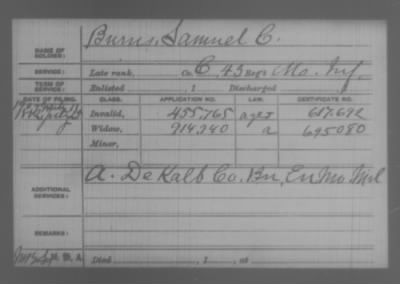 Burns, Samuel C.
NAME OF SOLDIER:
SERVICE: Late rank, Co. C, 43 Reg't Mo. Inf.
TERM OF SERVICE: Enlisted , 1 Discharged
DATE OF FILING. CLASS. APPLICATION NO. LAW. CERTIFICATE NO.
Invalid, 455,765 617,692
Widow, 914,240 a 695080
Minor,
ADDITIONAL SERVICES: A. De Kalb Co. Bn, En Mo Mil
REMARKS:
Died , 1 , at